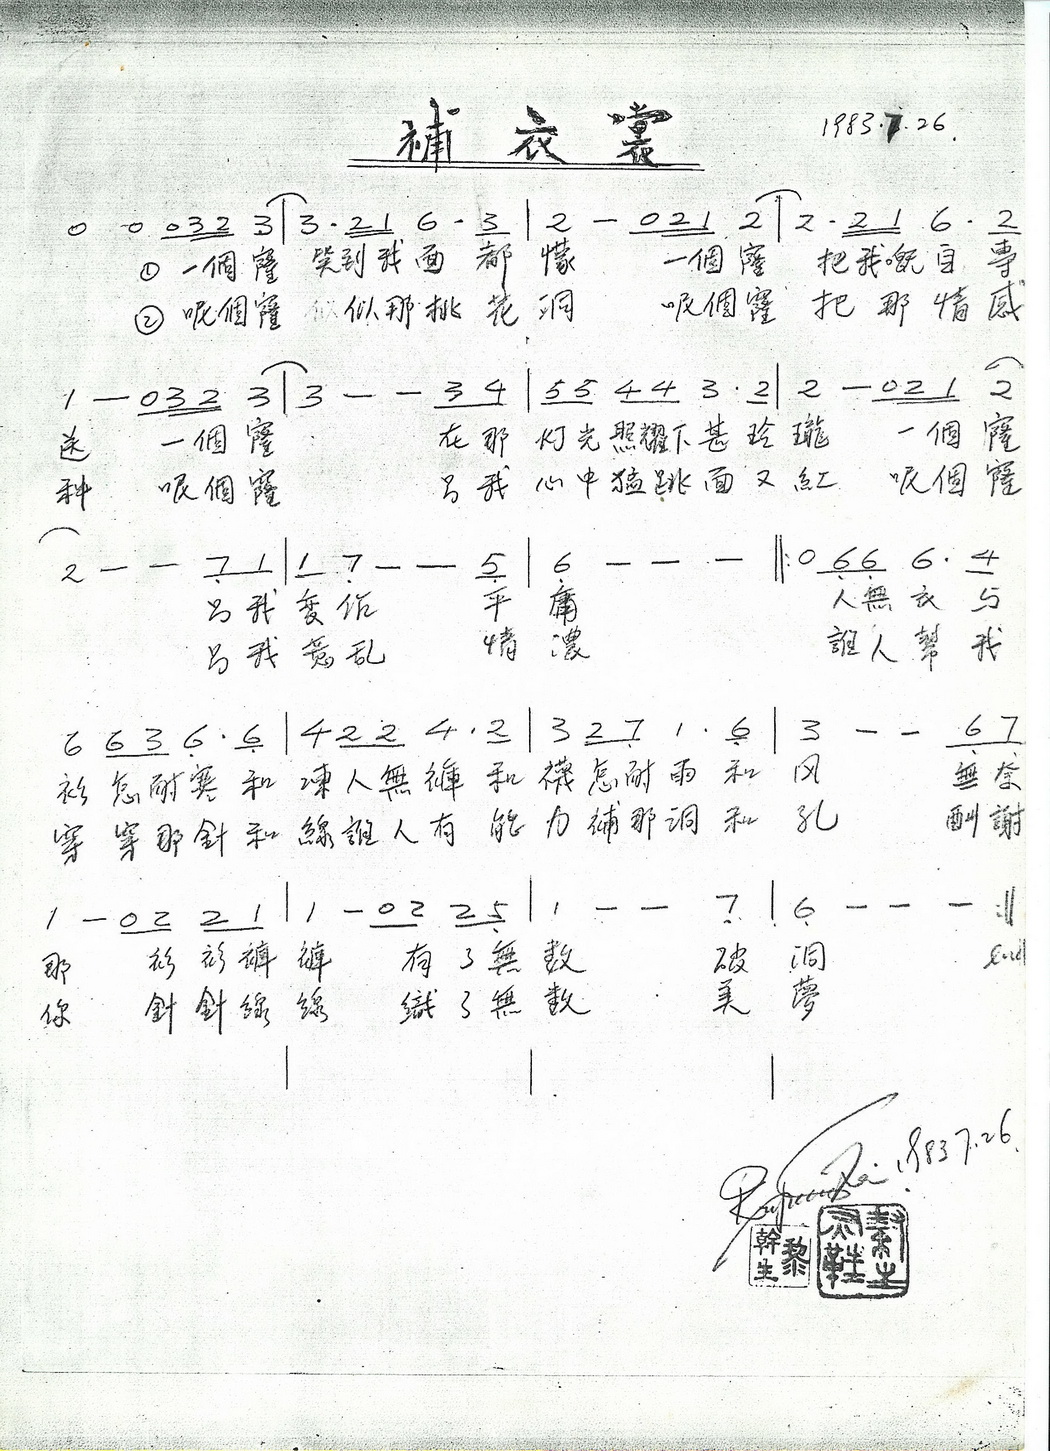 補衣裳 1983.7.26.
0 0 032 3 | 3·21 6·3 | 2 – 021 2 | 2·21 6·2
① 一個窿 笑到我面都懞 一個窿 把我嘅自專
② 呢個窿 似那桃花洞 呢個窿 把那情感
1 – 032 3 | 3 – – 34 | 55 44 3·2 | 2 – 021 2
送 一個窿 在那灯光照耀下甚玲瓏 一個窿
科 呢個窿 另我心中猛跳面又紅 呢個窿
2 – – 71 | 1 7 – – 5 | 6 – – – ‖: 0 66 6·4
另我变作平庸 人無衣与
另我意乱情濃 誰人幫我
6 63 6·6 | 4 22 4·2 | 3 27 1·6 | 3 – – 67
衫怎耐寒和凍人無褲和襪怎耐雨和风 無奈
穿穿那針和線誰人有能力補那洞和孔 酬謝
1 – 02 21 | 1 – 02 25 | 1 – – 7 | 6 – – – :‖
那 衫衫褲褲 有了無数 破洞 end
你 針針線線 織了無数 美夢
1983 7.26.
黎幹生